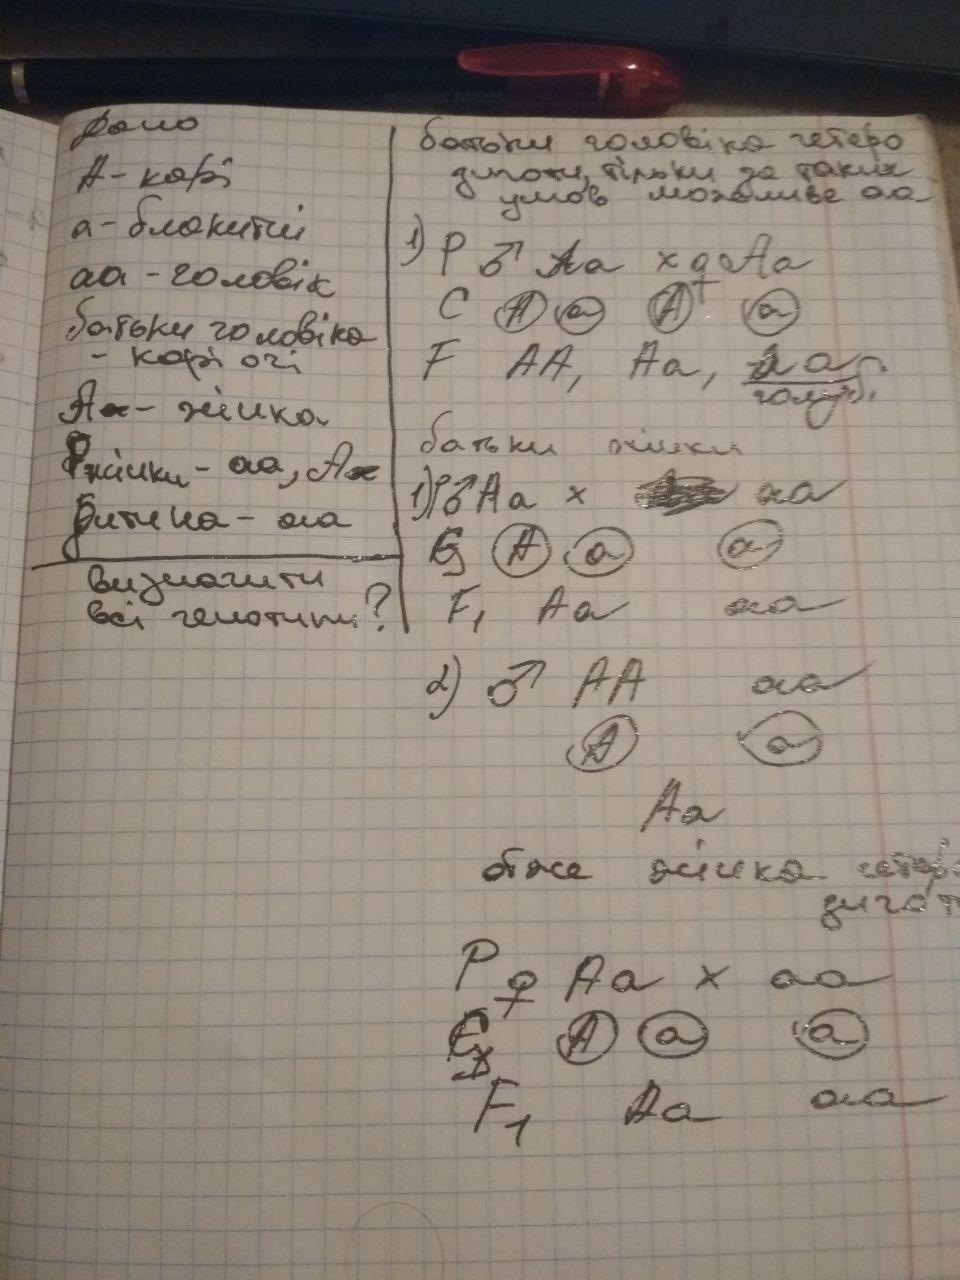 Дано
А - карі
а - блакитні
аа - чоловік
батьки чоловіка
- карі очі
Ах - жінка
Р жінки - аа, Ах
Дитина - аа
визначити
всі генотипи?
батьки чоловіка гетеро
зиготи, тільки за таких
умов можливе аа
1) P ♂ Aa x ♀ Aa
G A a A a
F AA, Aa, aa
голуб.
батьки жінки
1) P ♂ Aa x aa
G A a a
F1 Aa aa
2) ♂ AA aa
A a
Aa
отже жінка гетеро
зигот
P ♀ Aa x aa
G A a a
F1 Aa aa